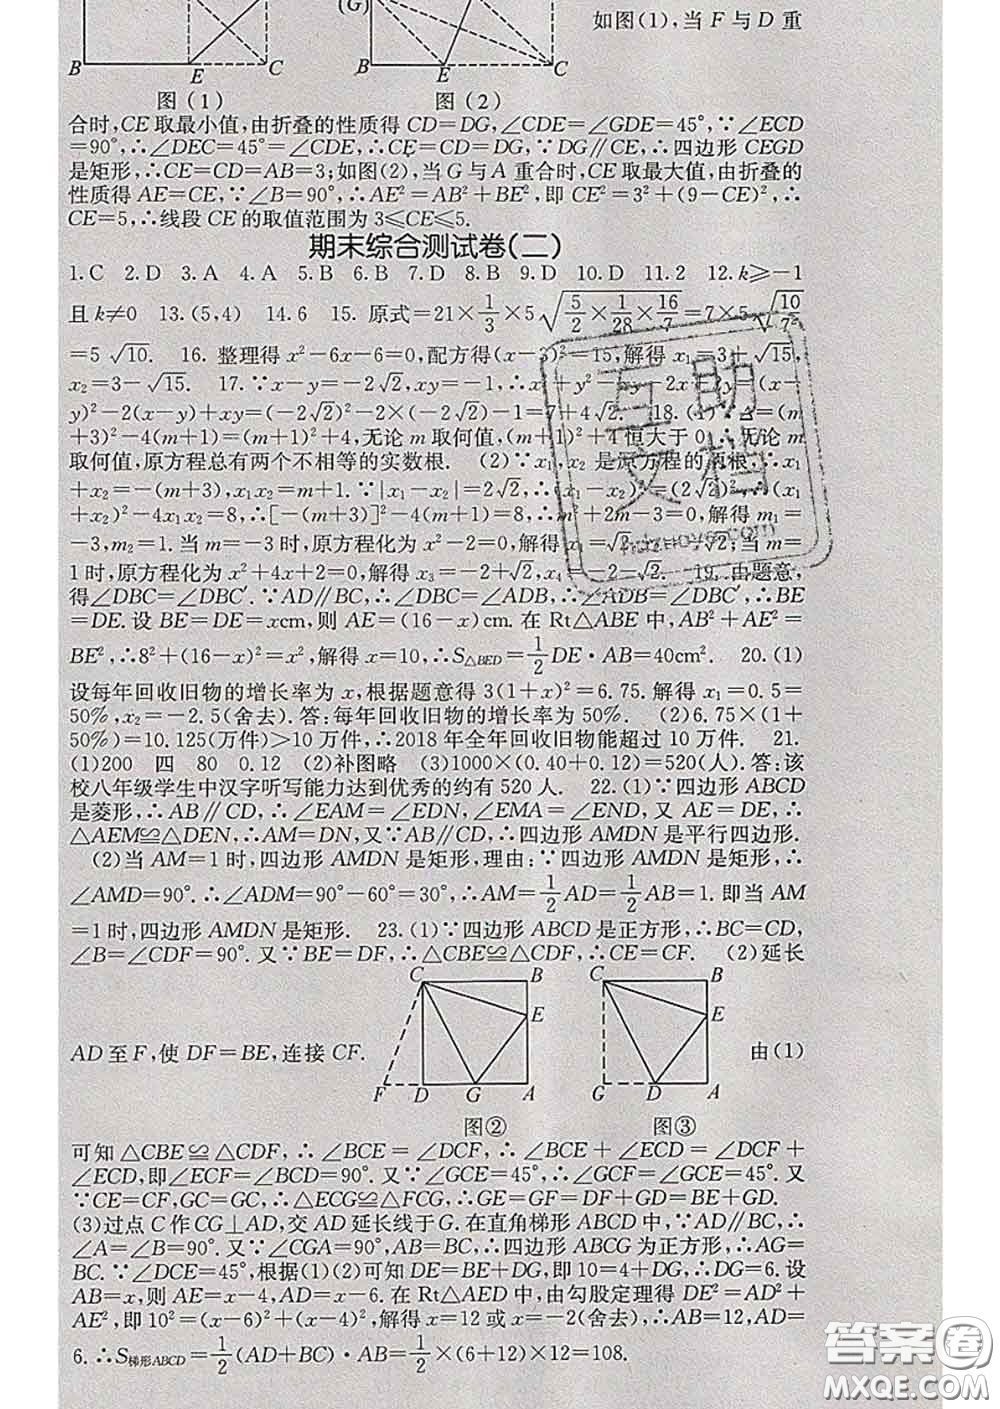 (G)
如图(1),当 F 与 D 重
B E C
E C
图(1) 图(2)
合时,CE 取最小值,由折叠的性质得 CD=DG,∠CDE=∠GDE=45°,∵∠ECD
=90°,∴∠DEC=45°=∠CDE,∴CE=CD=DG,∵DG∥CE,∴四边形 CEGD
是矩形,∴CE=CD=AB=3;如图(2),当 G 与 A 重合时,CE 取最大值,由折叠的
性质得 AE=CE,∵∠B=90°,∴AE²=AB²+BE²,即 CE²=3²+(9-CE)²,∴
CE=5,∴线段 CE 的取值范围为 3≤CE≤5.
期末综合测试卷(二)
1.C 2.D 3.A 4.A 5.B 6.B 7.D 8.B 9.D 10.D 11.2 12.k≥-1
且 k≠0 13.(5,4) 14.6 15. 原式=21×1/3×5√(5/2×1/28×16/7)=7×5√(10/7²)
=5√10. 16. 整理得 x²-6x-6=0,配方得(x-3)²=15,解得 x₁=3+√15,
x₂=3-√15. 17.∵x-y=-2√2,xy=-1,∴x²+y²-xy-2x+2y=(x-
y)²-2(x-y)+xy=(-2√2)²-2×(-2√2)-1=7+4√2. 18.(1)∵△=(m
+3)²-4(m+1)=(m+1)²+4,无论 m 取何值,(m+1)²+4 恒大于 0,∴无论 m
取何值,原方程总有两个不相等的实数根. (2)∵x₁,x₂ 是原方程的两根,∴x₁
+x₂=-(m+3),x₁x₂=m+1.∵|x₁-x₂|=2√2,∴(x₁-x₂)²=(2√2)²,∴(x₁
+x₂)²-4x₁x₂=8,∴[-(m+3)]²-4(m+1)=8,∴m²+2m-3=0,解得 m₁=
-3,m₂=1. 当 m=-3时,原方程化为 x²-2=0,解得 x₁=√2,x₂=-√2;当 m=
1时,原方程化为 x²+4x+2=0,解得 x₃=-2+√2,x₄=-2-√2. 19. 由题意,
得∠DBC=∠DBC′.∵AD∥BC,∴∠DBC=∠ADB,∴∠ADB=∠DBC′,∴BE
=DE. 设 BE=DE=xcm,则 AE=(16-x)cm. 在 Rt△ABE 中,AB²+AE²=
BE²,∴8²+(16-x)²=x²,解得 x=10,∴S△BED=1/2DE·AB=40cm². 20.(1)
设每年回收旧物的增长率为 x,根据题意得 3(1+x)²=6.75. 解得 x₁=0.5=
50%,x₂=-2.5(舍去). 答:每年回收旧物的增长率为 50%. (2)6.75×(1+
50%)=10.125(万件)>10 万件,∴2018 年全年回收旧物能超过 10 万件. 21.
(1)200 四 80 0.12 (2)补图略 (3)1000×(0.40+0.12)=520(人). 答:该
校八年级学生中汉字听写能力达到优秀的约有 520 人. 22.(1)∵四边形 ABCD
是菱形,∴AB∥CD,∴∠EAM=∠EDN,∠EMA=∠END,又 AE=DE,∴
△AEM≌△DEN,∴AM=DN,又∵AB∥CD,∴四边形 AMDN 是平行四边形.
(2)当 AM=1时,四边形 AMDN 是矩形,理由:∵四边形 AMDN 是矩形,∴
∠AMD=90°.∴∠ADM=90°-60°=30°,∴AM=1/2AD=1/2AB=1. 即当 AM
=1时,四边形 AMDN 是矩形. 23.(1)∵四边形 ABCD 是正方形,∴BC=CD,
∠B=∠CDF=90°. 又∵BE=DF,∴△CBE≌△CDF,∴CE=CF. (2)延长
C B C B
E E
AD 至 F,使 DF=BE,连接 CF. 由(1)
F D G A G D A
图② 图③
可知△CBE≌△CDF,∴∠BCE=∠DCF,∴∠BCE+∠ECD=∠DCF+
∠ECD,即∠ECF=∠BCD=90°. 又∵∠GCE=45°,∴∠GCF=∠GCE=45°. 又
∵CE=CF,GC=GC,∴△ECG≌△FCG,∴GE=GF=DF+GD=BE+GD.
(3)过点 C 作 CG⊥AD,交 AD 延长线于 G. 在直角梯形 ABCD 中,∵AD∥BC,∴
∠A=∠B=90°. 又∵∠CGA=90°,AB=BC,∴四边形 ABCG 为正方形,∴AG=
BC.∵∠DCE=45°,根据(1)(2)可知 DE=BE+DG,即10=4+DG,∴DG=6. 设
AB=x,则 AE=x-4,AD=x-6. 在 Rt△AED 中,由勾股定理得 DE²=AD²+
AE²,即10²=(x-6)²+(x-4)²,解得 x=12或 x=-2(舍去),∴AB=12,AD=
6.∴S梯形ABCD=1/2(AD+BC)·AB=1/2×(6+12)×12=108.
互助
文档
答案圈
MXQE.COM